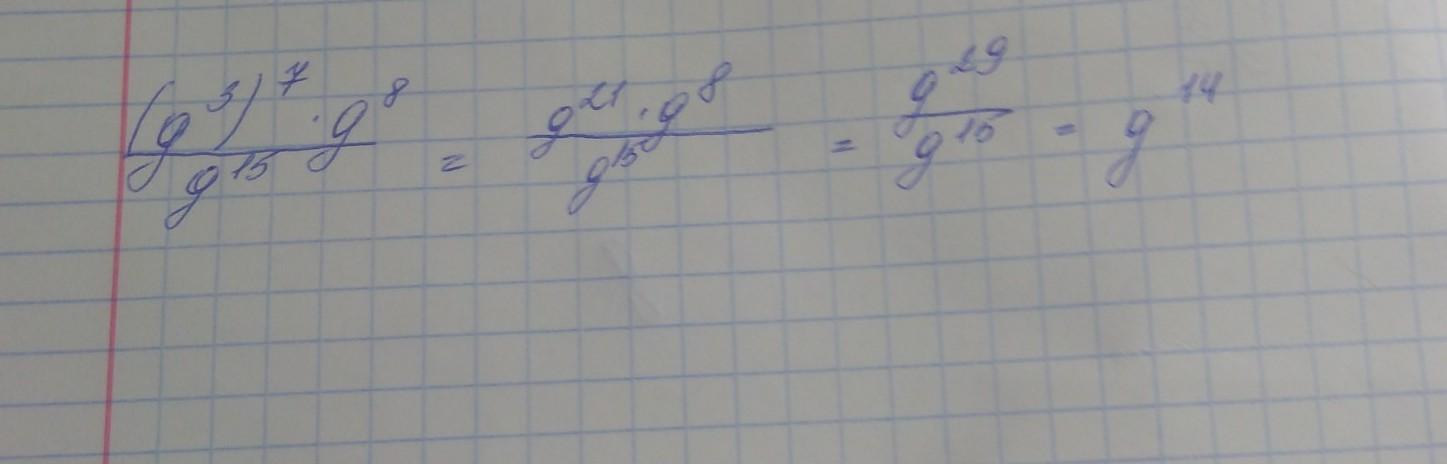 (g³)⁷ · g⁸ / g¹⁵ = g²¹ · g⁸ / g¹⁵ = g²⁹ / g¹⁵ = g¹⁴